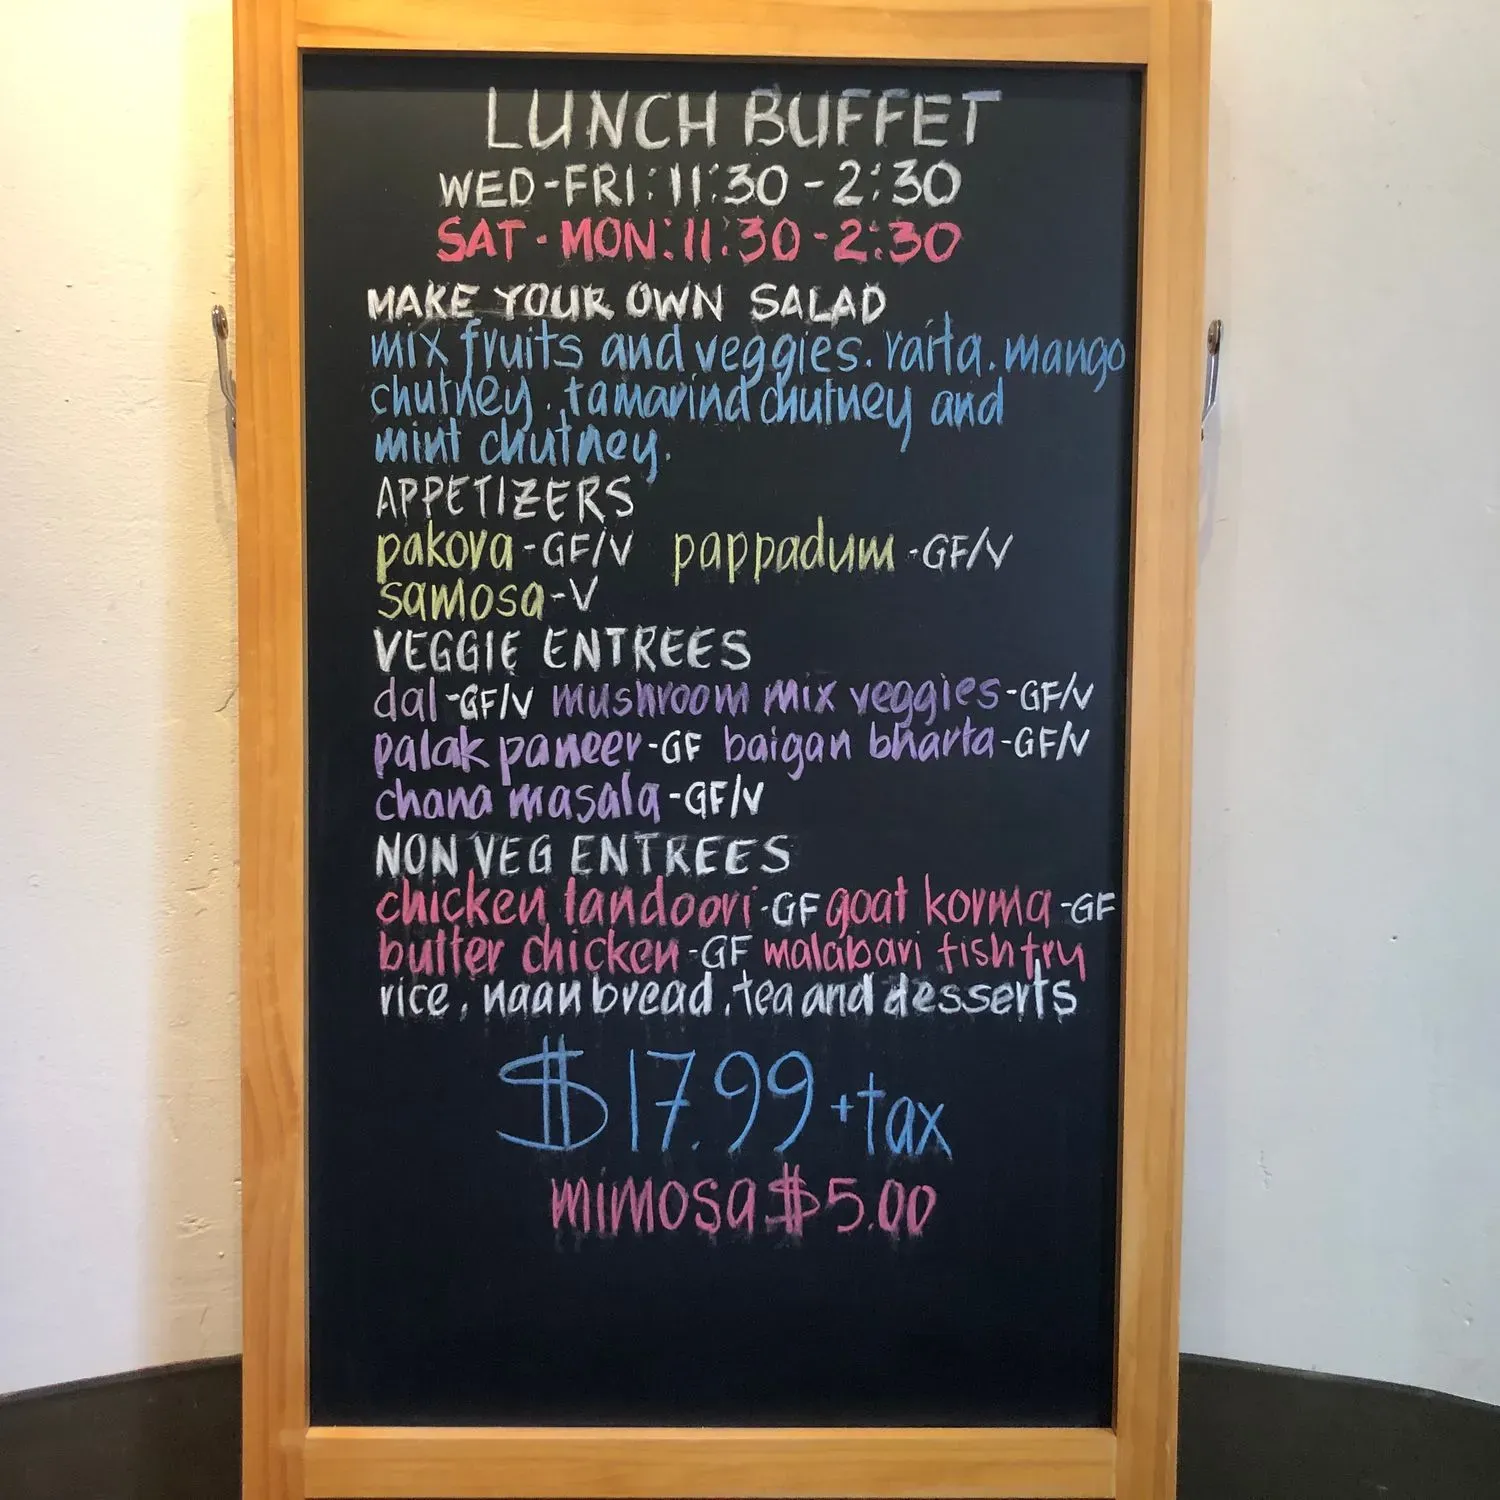 LUNCH BUFFET
WED-FRI: 11:30 - 2:30
SAT - MON: 11:30 - 2:30
MAKE YOUR OWN SALAD
mix fruits and veggies. raita. mango
chutney. tamarind chutney and
mint chutney.
APPETIZERS
pakora - GF/V pappadum - GF/V
samosa - V
VEGGIE ENTREES
dal - GF/V mushroom mix veggies - GF/V
palak paneer - GF baigan bharta - GF/V
chana masala - GF/V
NON VEG ENTREES
chicken tandoori - GF goat korma - GF
butter chicken - GF malabari fish fry
rice, naan bread, tea and desserts
$17.99 + tax
mimosa $5.00